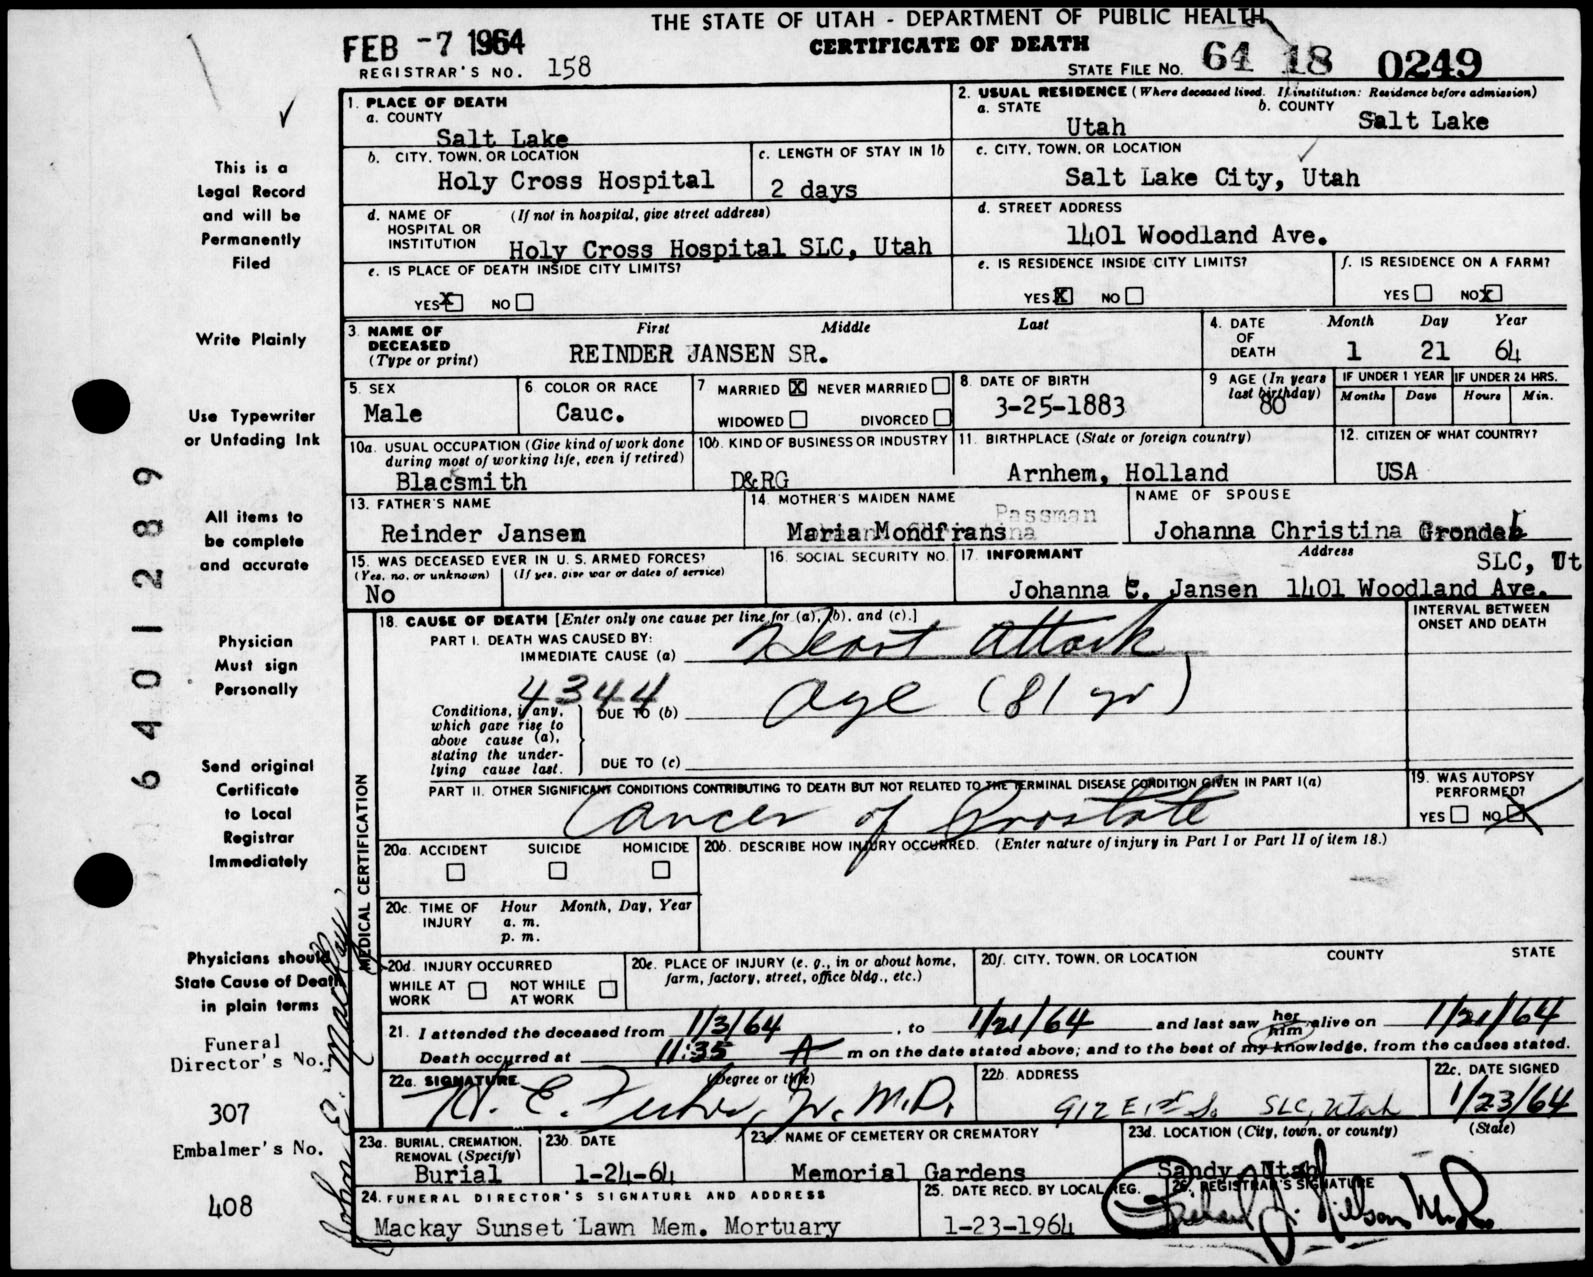 THE STATE OF UTAH - DEPARTMENT OF PUBLIC HEALTH
CERTIFICATE OF DEATH
FEB -7 1964
REGISTRAR'S NO. 158
STATE FILE NO. 64 18 0249
1. PLACE OF DEATH
a. COUNTY
Salt Lake
2. USUAL RESIDENCE (Where deceased lived. If institution: Residence before admission)
a. STATE b. COUNTY
Utah Salt Lake
b. CITY, TOWN, OR LOCATION
Holy Cross Hospital
c. LENGTH OF STAY IN 1b
2 days
c. CITY, TOWN, OR LOCATION
Salt Lake City, Utah
d. NAME OF HOSPITAL OR INSTITUTION (If not in hospital, give street address)
Holy Cross Hospital SLC, Utah
d. STREET ADDRESS
1401 Woodland Ave.
e. IS PLACE OF DEATH INSIDE CITY LIMITS?
YES X NO
e. IS RESIDENCE INSIDE CITY LIMITS?
YES X NO
f. IS RESIDENCE ON A FARM?
YES NO X
3. NAME OF DECEASED (Type or print)
First Middle Last
REINDER JANSEN SR.
4. DATE OF DEATH
Month Day Year
1 21 64
5. SEX
Male
6 COLOR OR RACE
Cauc.
7 MARRIED X NEVER MARRIED
WIDOWED DIVORCED
8. DATE OF BIRTH
3-25-1883
9 AGE (In years last birthday)
80
IF UNDER 1 YEAR
Months Days
IF UNDER 24 HRS.
Hours Min.
10a. USUAL OCCUPATION (Give kind of work done during most of working life, even if retired)
Blacsmith
10b. KIND OF BUSINESS OR INDUSTRY
D&RG
11. BIRTHPLACE (State or foreign country)
Arnhem, Holland
12. CITIZEN OF WHAT COUNTRY?
USA
13. FATHER'S NAME
Reinder Jansen
14. MOTHER'S MAIDEN NAME
Passman
Maria Mondfrans
NAME OF SPOUSE
Johanna Christina
15. WAS DECEASED EVER IN U. S. ARMED FORCES?
(Yes, no, or unknown) (If yes, give war or dates of service)
No
16. SOCIAL SECURITY NO.
17. INFORMANT Address
SLC, Ut
Johanna C. Jansen 1401 Woodland Ave.
MEDICAL CERTIFICATION
18. CAUSE OF DEATH [Enter only one cause per line for (a), (b), and (c).]
INTERVAL BETWEEN ONSET AND DEATH
PART I. DEATH WAS CAUSED BY:
IMMEDIATE CAUSE (a) Heart Attack
4344
Conditions, if any, which gave rise to above cause (a), stating the underlying cause last.
DUE TO (b) Age (81 yr)
DUE TO (c)
PART II. OTHER SIGNIFICANT CONDITIONS CONTRIBUTING TO DEATH BUT NOT RELATED TO THE TERMINAL DISEASE CONDITION GIVEN IN PART I(a)
Cancer of Prostate
19. WAS AUTOPSY PERFORMED?
YES NO X
20a. ACCIDENT SUICIDE HOMICIDE
20b. DESCRIBE HOW INJURY OCCURRED. (Enter nature of injury in Part I or Part II of item 18.)
20c. TIME OF INJURY Hour Month, Day, Year
a. m.
p. m.
20d. INJURY OCCURRED
WHILE AT WORK NOT WHILE AT WORK
20e. PLACE OF INJURY (e. g., in or about home, farm, factory, street, office bldg., etc.)
20f. CITY, TOWN, OR LOCATION COUNTY STATE
21. I attended the deceased from 1/3/64, to 1/21/64 and last saw her him alive on 1/21/64
Death occurred at 11:35 A m on the date stated above; and to the best of my knowledge, from the causes stated.
22a. SIGNATURE (Degree or title)
H. E. , Jr. M.D.
22b. ADDRESS
912 E. 1st So. SLC, Utah
22c. DATE SIGNED
1/23/64
23a. BURIAL, CREMATION, REMOVAL (Specify)
Burial
23b. DATE
1-24-64
23c. NAME OF CEMETERY OR CREMATORY
Memorial Gardens
23d. LOCATION (City, town, or county) (State)
Sandy, Utah
24. FUNERAL DIRECTOR'S SIGNATURE AND ADDRESS
Mackay Sunset Lawn Mem. Mortuary
25. DATE RECD. BY LOCAL REG.
1-23-1964
26. REGISTRAR'S SIGNATURE
J. Nilson M.D.
This is a
Legal Record
and will be
Permanently
Filed
Write Plainly
Use Typewriter
or Unfading Ink
All items to
be complete
and accurate
Physician
Must sign
Personally
Send original
Certificate
to Local
Registrar
Immediately
Physicians should
State Cause of Death
in plain terms
Funeral
Director's No.
307
Embalmer's No.
408
6401289
John E. Mackay